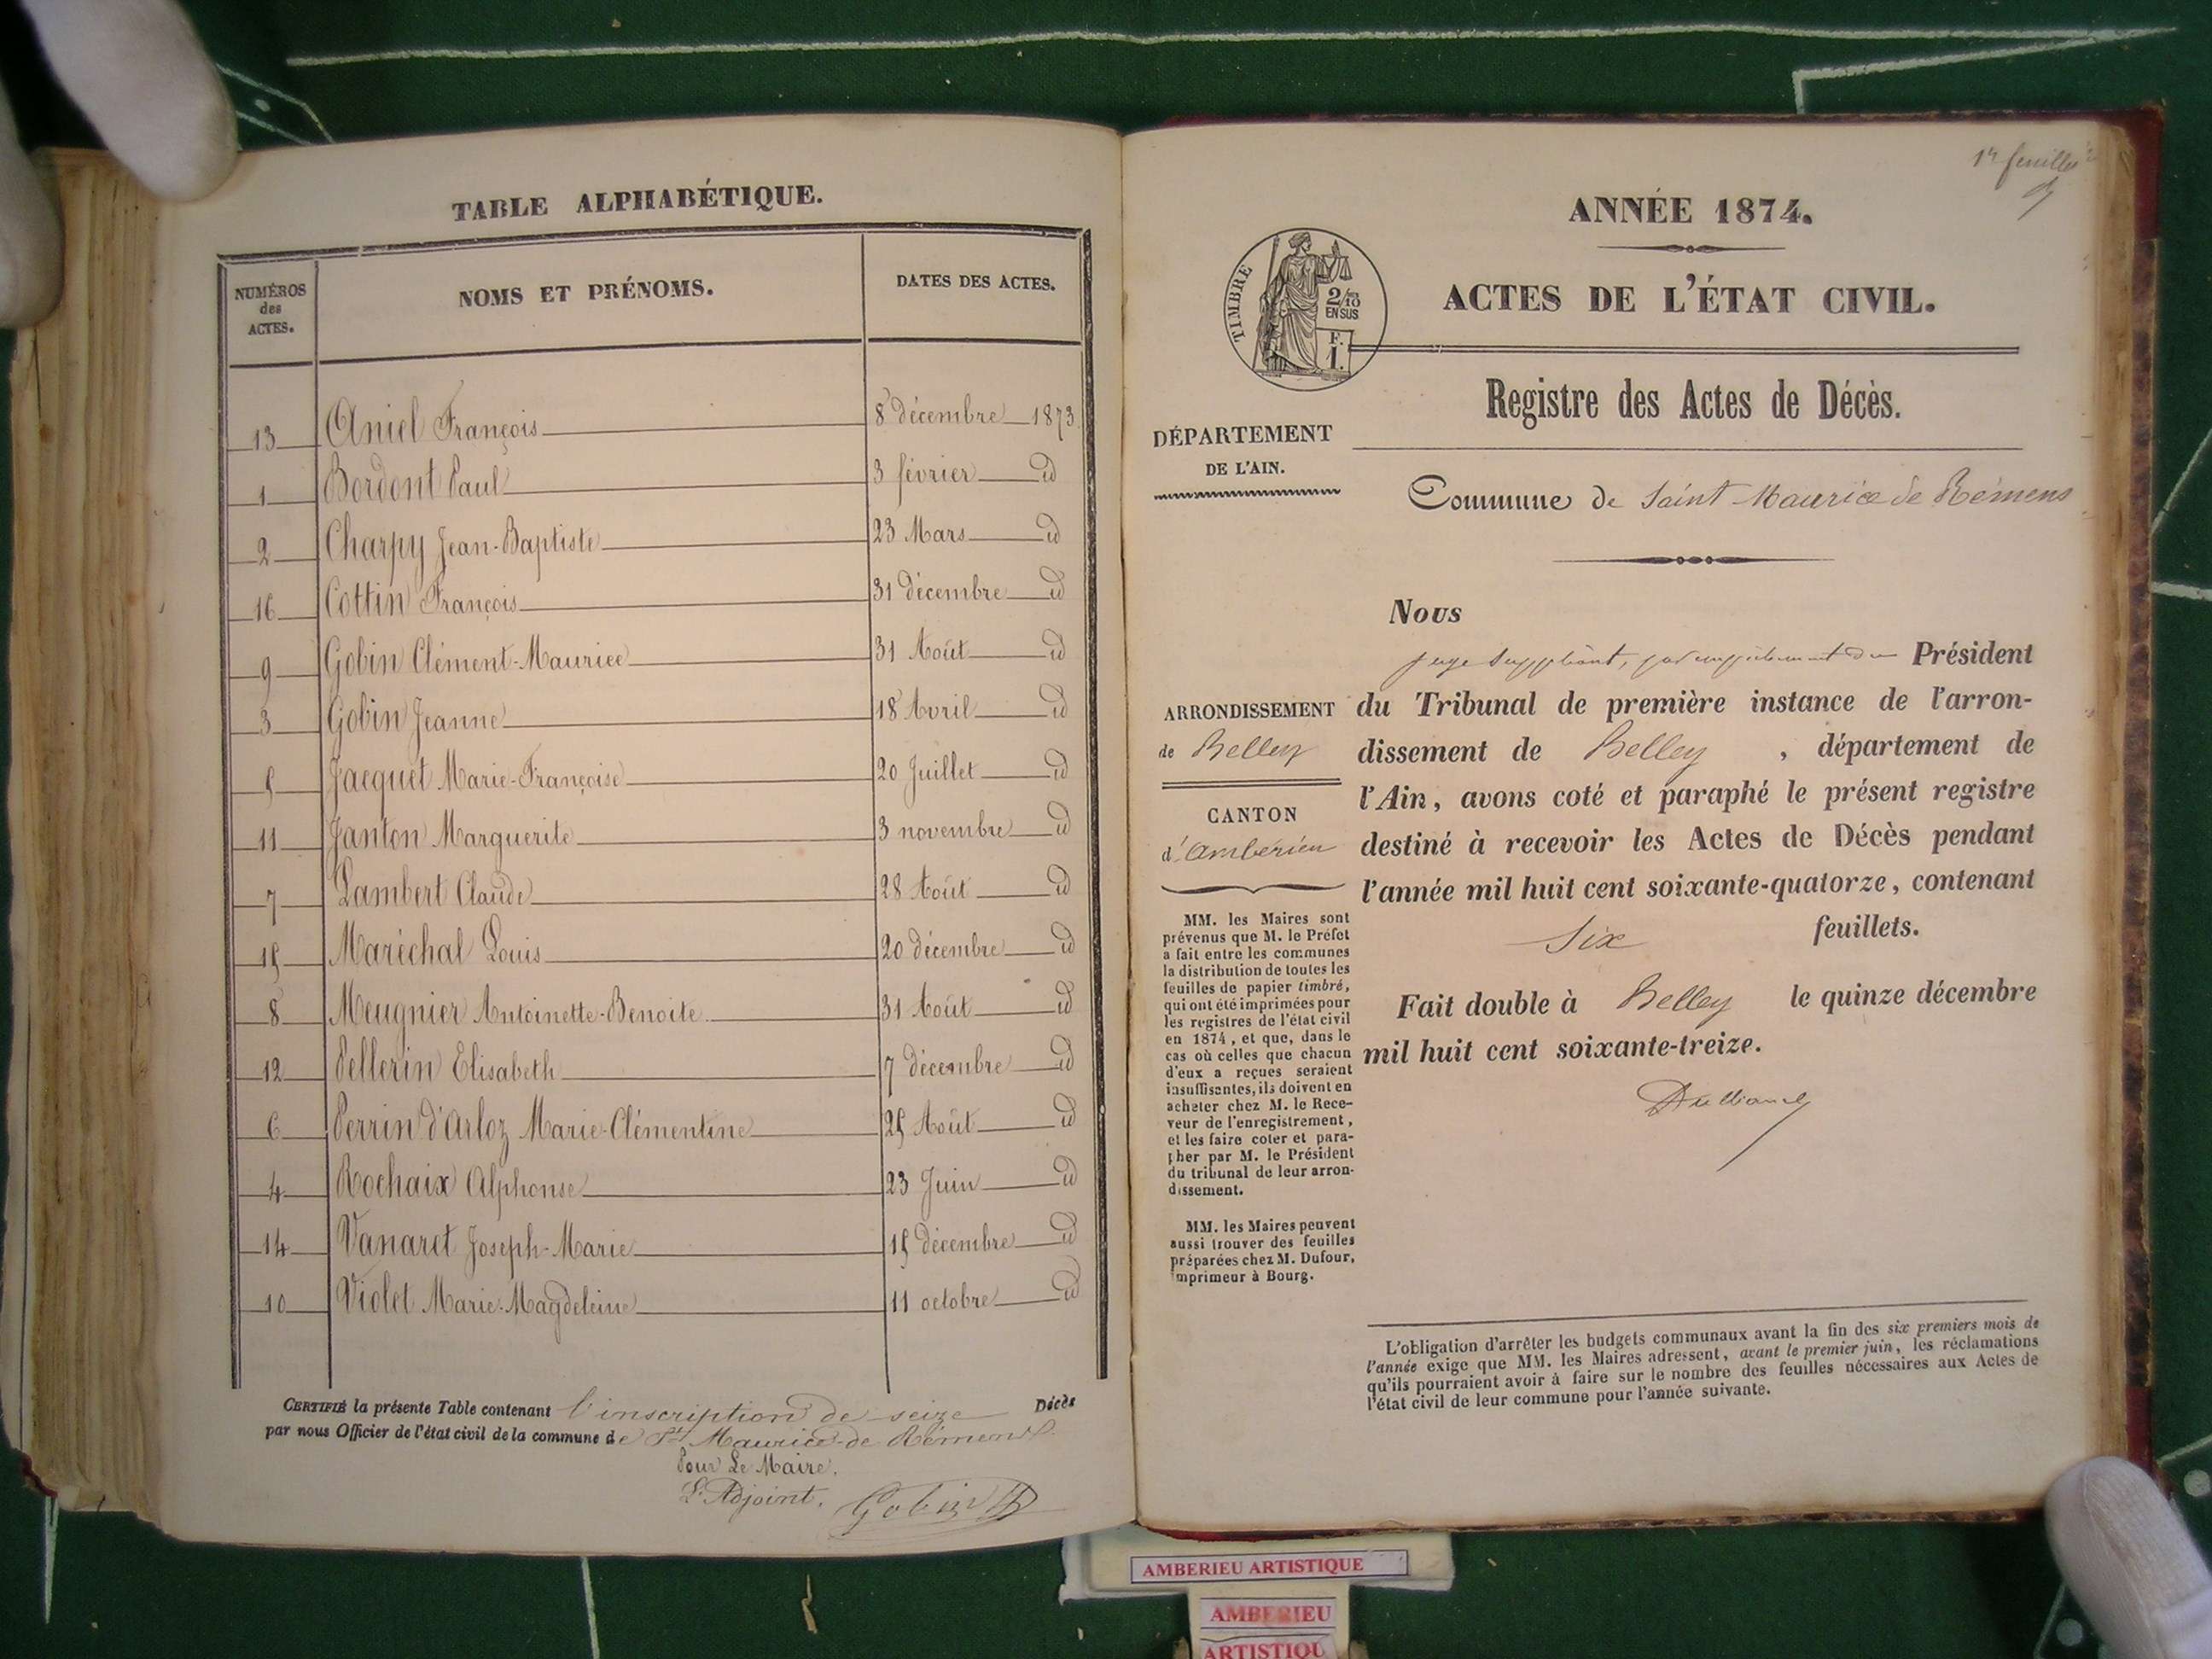 TABLE ALPHABÉTIQUE.
NUMÉROS des ACTES. NOMS ET PRÉNOMS. DATES DES ACTES.
13 Aniel François 8 décembre 1873
1 Bordont Paul 3 février id
2 Charpy Jean-Baptiste 23 Mars id
16 Cottin François 31 décembre id
9 Gobin Clément-Maurice 31 Août id
3 Gobin Jeanne 18 Avril id
5 Jacquet Marie-Françoise 20 Juillet id
11 Janton Marguerite 3 novembre id
7 Lambert Claude 28 Août id
15 Maréchal Louis 20 décembre id
8 Meugnier Antoinette-Benoite 31 Août id
12 Pellerin Elisabeth 7 décembre id
6 Perrin d'Arloz Marie-Clémentine 25 Août id
4 Rochaix Alphonse 23 Juin id
14 Vanaret Joseph-Marie 15 décembre id
10 Violet Marie-Magdeleine 11 octobre id
CERTIFIÉ la présente Table contenant l'inscription de seize Décès
par nous Officier de l'état civil de la commune de St Maurice-de Rémens
Pour Le Maire,
L'Adjoint, Gobin
1er feuillet
ANNÉE 1874.
TIMBRE
2/10
EN SUS
F.
1.
ACTES DE L'ÉTAT CIVIL.
Registre des Actes de Décès.
DÉPARTEMENT
DE L'AIN.
Commune de Saint Maurice de Rémens
ARRONDISSEMENT
de Belley
CANTON
d'Ambérieu
MM. les Maires sont
prévenus que M. le Préfet
a fait entre les communes
la distribution de toutes les
feuilles de papier timbré,
qui ont été imprimées pour
les registres de l'état civil
en 1874, et que, dans le
cas où celles que chacun
d'eux a reçues seraient
insuffisantes, ils doivent en
acheter chez M. le Rece-
veur de l'enregistrement,
et les faire coter et para-
pher par M. le Président
du tribunal de leur arron-
dissement.
MM. les Maires peuvent
aussi trouver des feuilles
préparées chez M. Dufour,
imprimeur à Bourg.
Nous
juge suppléant, par empêchement du Président
du Tribunal de première instance de l'arron-
dissement de Belley, département de
l'Ain, avons coté et paraphé le présent registre
destiné à recevoir les Actes de Décès pendant
l'année mil huit cent soixante-quatorze, contenant
Six feuillets.
Fait double à Belley le quinze décembre
mil huit cent soixante-treize.
L'obligation d'arrêter les budgets communaux avant la fin des six premiers mois de
l'année exige que MM. les Maires adressent, avant le premier juin, les réclamations
qu'ils pourraient avoir à faire sur le nombre des feuilles nécessaires aux Actes de
l'état civil de leur commune pour l'année suivante.
AMBERIEU ARTISTIQUE
AMBERIEU
ARTISTIQU